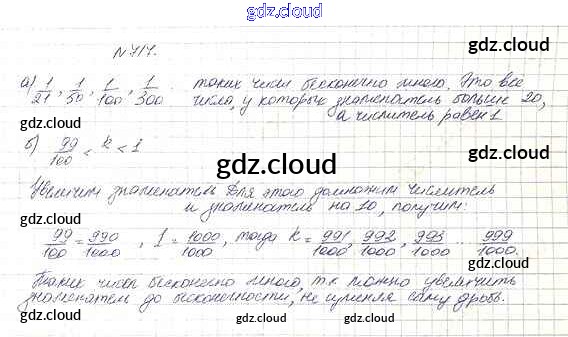 gdz.cloud
№717.
gdz.cloud
а) 1/21, 1/50, 1/100, 1/300. таких чисел бесконечно много. Это все
числа, у которых знаменатель больше 20,
а числитель равен 1
gdz.cloud
б) 99/100 < k < 1
gdz.cloud
gdz.cloud
Увеличим знаменатель Для этого домножим числитель
и знаменатель на 10, получим:
99/100 = 990/1000, 1 = 1000/1000, тогда k = 991/1000, 992/1000, 993/1000 ... 999/1000.
gdz.cloud
Таких чисел бесконечно много, т.к можно увеличить
знаменатель до бесконечности, не дробь.
gdz.cloud
gdz.cloud
gdz.cloud